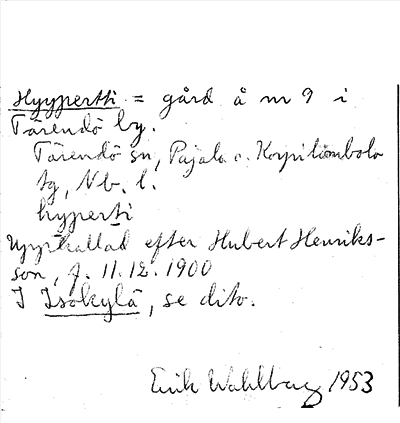 Hyypertti = gård å nr 9 i
Tärendö by.
Tärendö sn, Pajala o. Korpilombolo
tg, Nb. l.
hyperti
Uppkallad efter Hubert Henriks-
son, f. 11.12.1900
I Isokylä, se dito.
Erik Wahlberg 1953